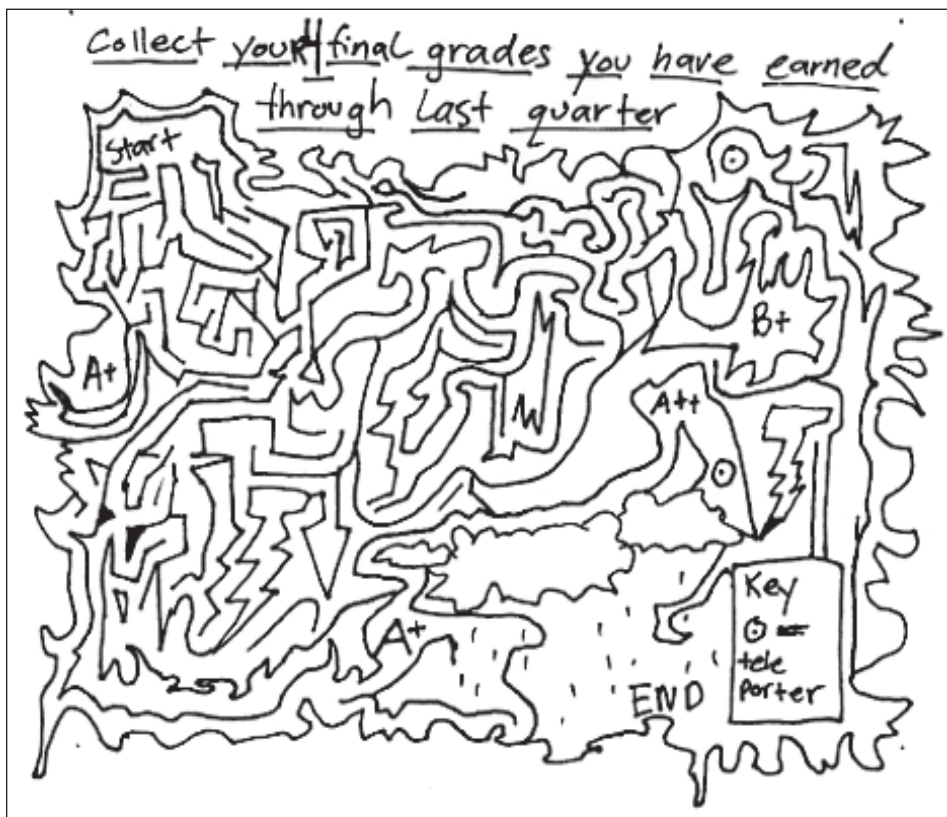 Collect your 4 final grades you have earned
through Last quarter
Start
A+
B+
A++
A+
Key
⊙ =
tele
porter
END